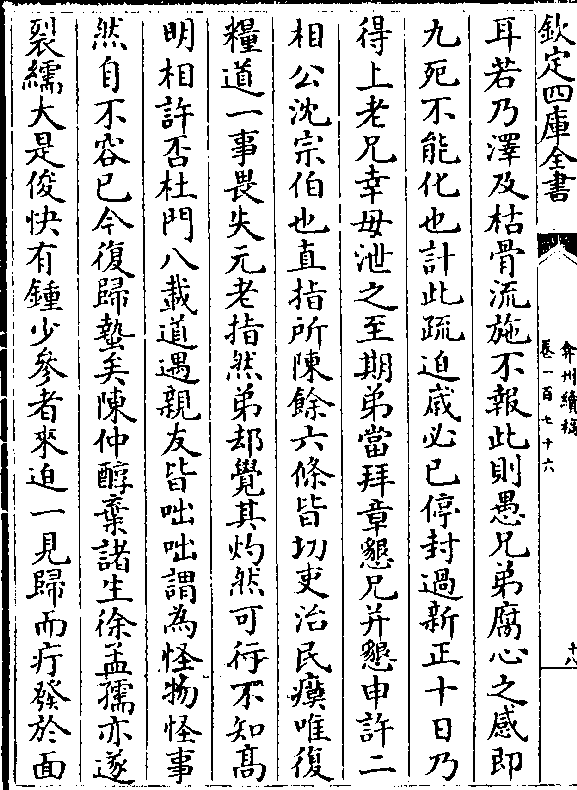 欽定四庫全書
弇州續稿
卷一百七十六
十八
耳若乃澤及枯骨流施不報此則愚兄弟腐心之感即
九死不能化也計此疏迫歲必已停封過新正十日乃
得上老兄幸毋泄之至期弟當拜章懇兄并懇申許二
相公沈宗伯也直指所陳餘六條皆切吏治民瘼唯復
糧道一事畏失元老指然弟却覺其灼然可行不知髙
明相許否杜門八載道遇親友皆咄咄謂為怪物怪事
然自不容已今復歸蟄矣陳仲醇棄諸生徐孟孺亦遂
裂繻大是俊快有鍾少參者來迫一見歸而疔發於面